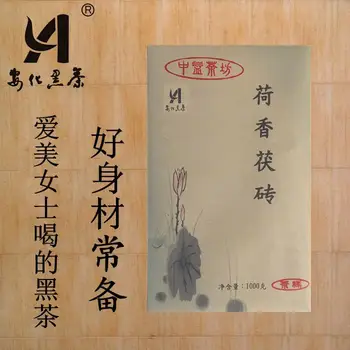 ®
安化黑茶
爱美女士喝的黑茶
好身材常备
中盈茶坊
安化黑茶
荷香茯砖
净含量：1000克